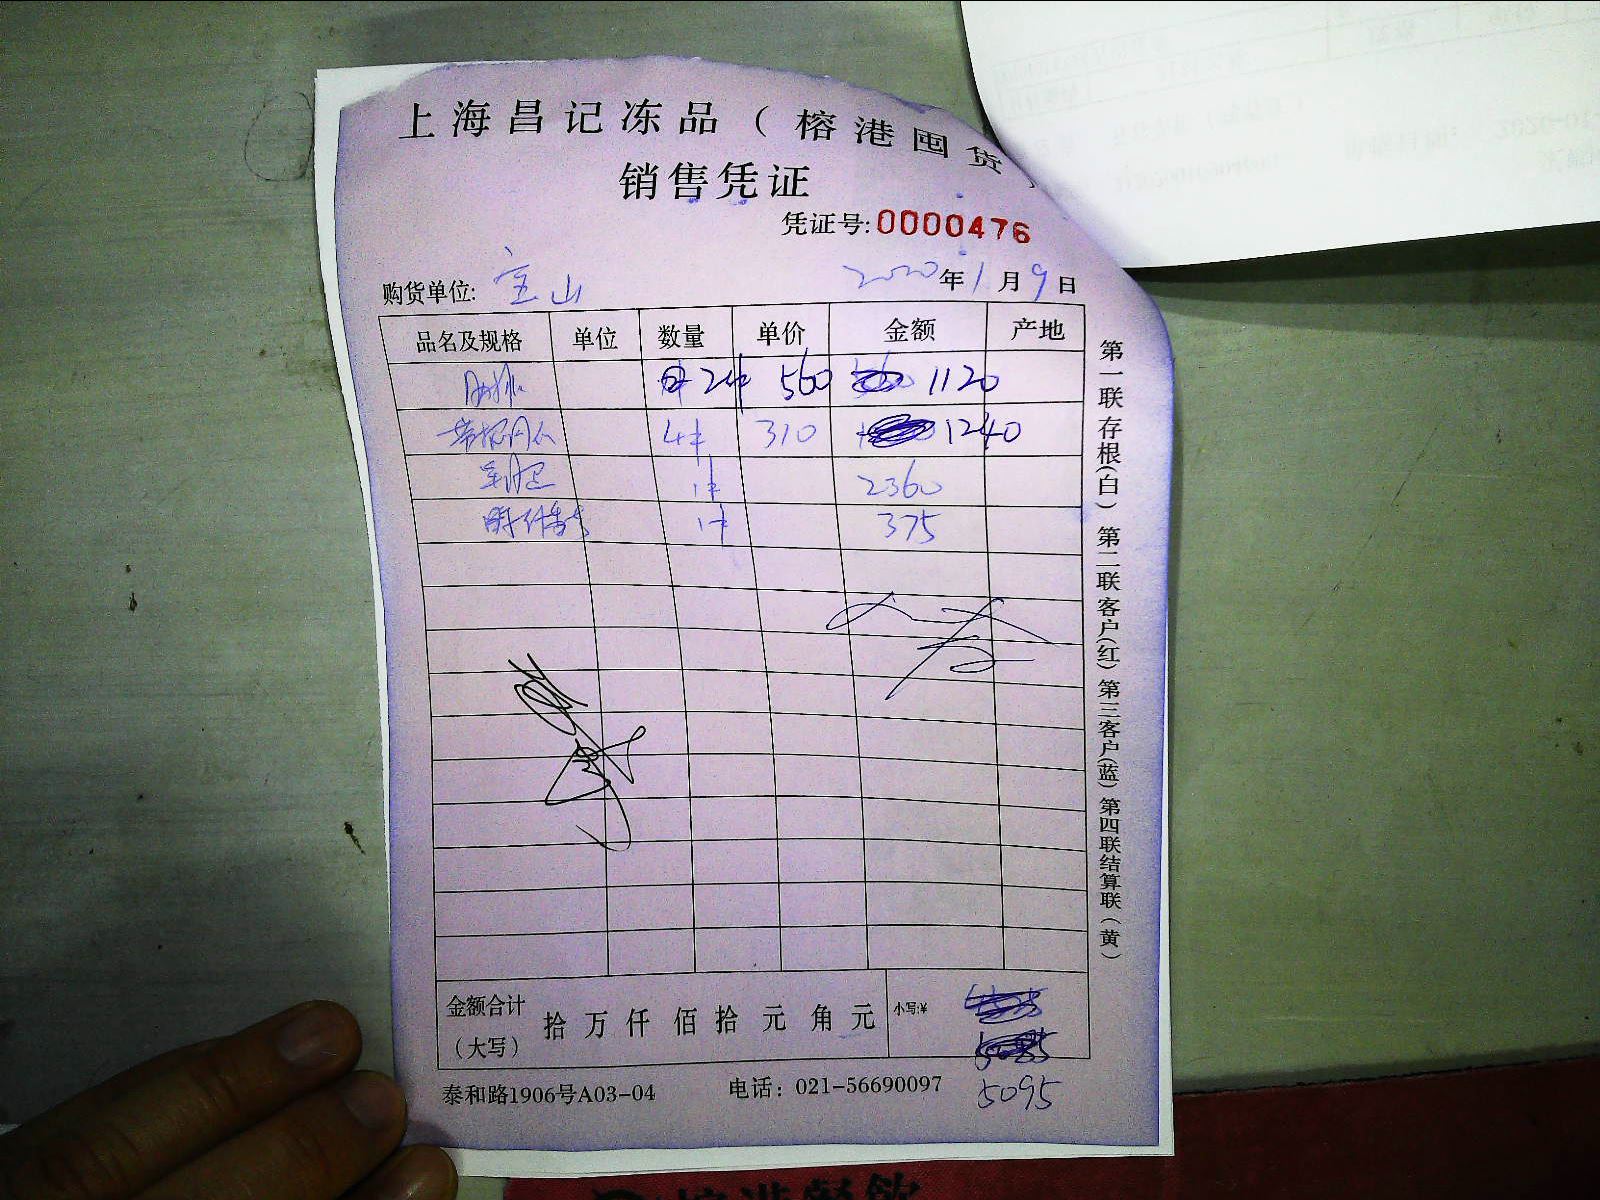 上海昌记冻品（榕港囤货）
销售凭证
凭证号:0000476
购货单位: 宝山 2020年1月9日
品名及规格 单位 数量 单价 金额 产地
2件 560 1120
4件 310 1240
1件 2360
1件 375
金额合计（大写） 拾万仟佰拾元角元 小写:¥
5095
泰和路1906号A03-04 电话：021-56690097
第一联存根(白) 第二联客户(红) 第三客户(蓝) 第四联结算联(黄)